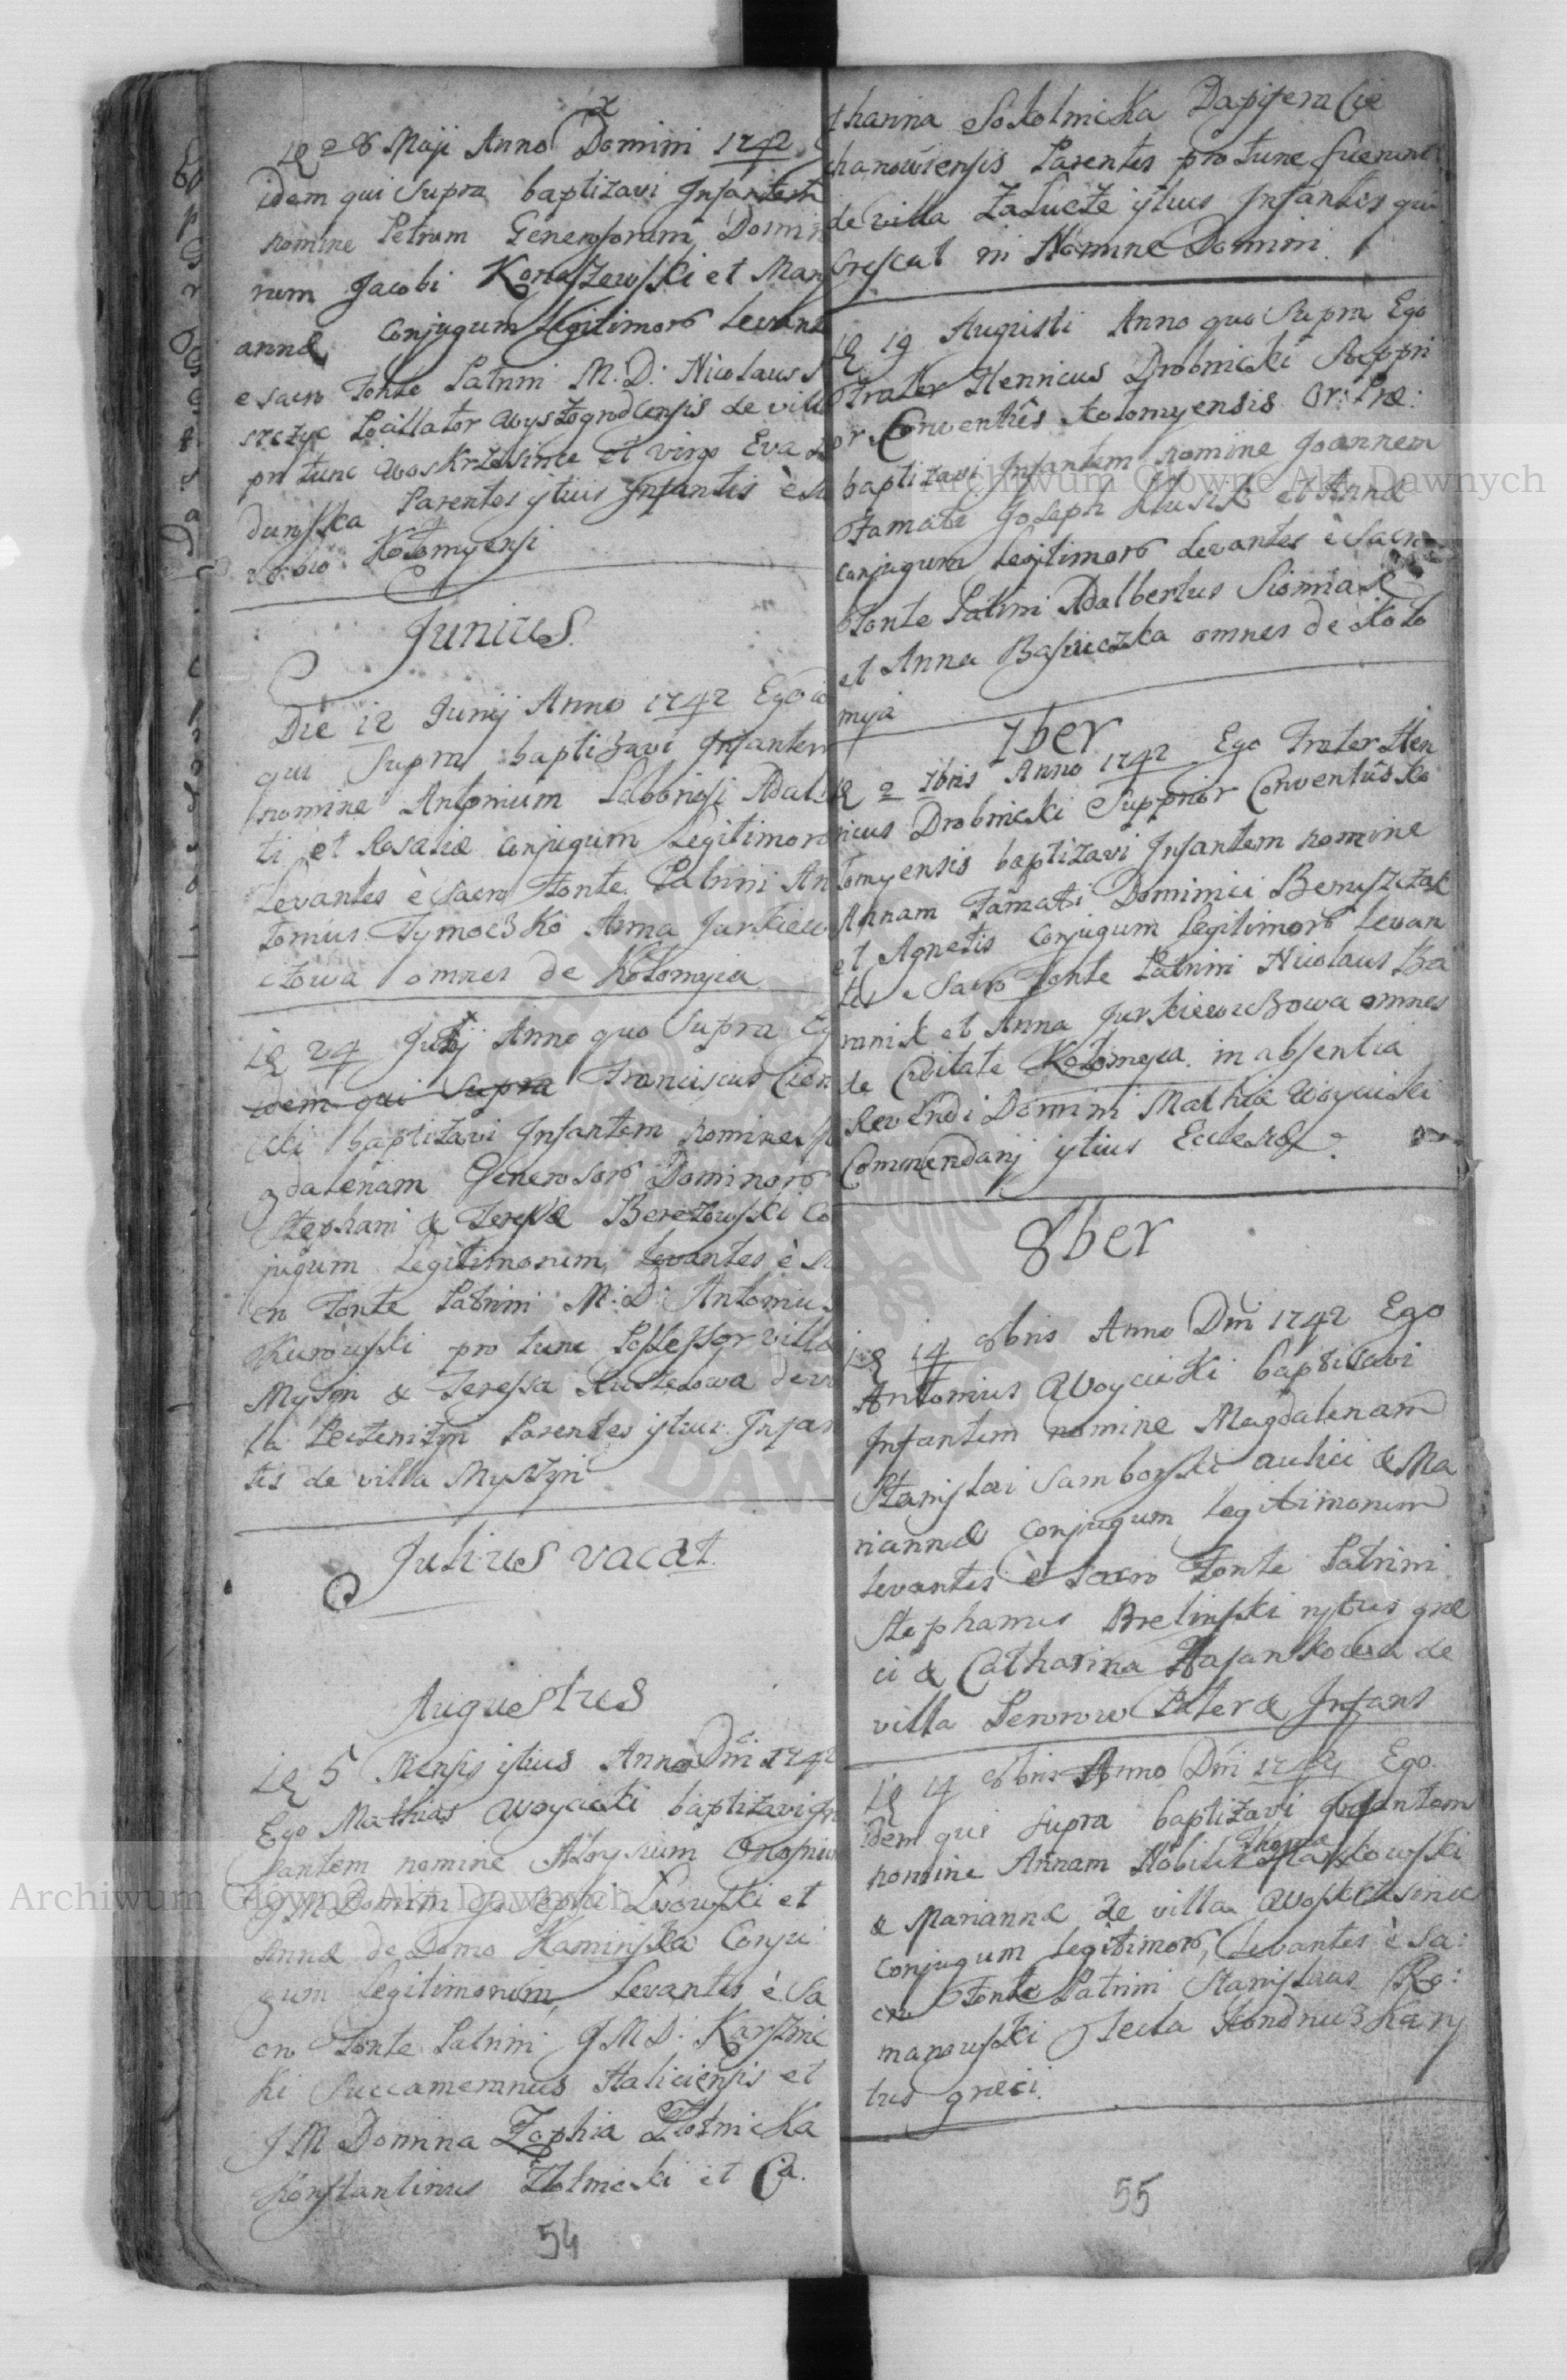 Die 28 Maji Anno Domini 1742
idem qui Supra baptizavi Infantem
nomine Petrum Generosorum Domin
rum Jacobi Konaszewski et Mary
annæ Conjugum Legitimorum Levant
e sacro Fonte Patrini M: D: Nicolaus
Pocillator Wyszogrodensis de villa
pro tunc Woskrzesince et virgo Eva
Parentes istius Infantis è
Kołomyensi
Junius
Die 12 Junij Anno 1742 Ego
qui Supra baptizavi Infantem
nomine Antonium Laboriosi Adalber
ti et Rosaliæ conjugum Legitimorum
Levantes è sacro Fonte Patrini An
tonius Tymoczko Anna Jurkiew
czowa omnes de Kołomyia
Die 24 Anno quo Supra Eg
idem qui Supra Franciscus
baptizavi Infantem nomine
gdalenam Generosorum Dominorum
Stephani & Teressæ Berezowski Co
jugum Legitimorum, Levantes è Sa
cro Fonte Patrini M: D: Antonius
Kurowski pro tunc Possessor villæ
Myszyn & Teressa de vi
la Peczeniżyn Parentes istius Infan
tis de villa Myszyn
Julius vacat.
Augustus
Die 5 Mensis istius Anno Dni 1742
Ego Mathias Woycicki baptizavi In
fantem nomine Aloysium
J M Domini Josephi Lwowski et
Annæ de Domo Kaminska Conju
gum Legitimorum Levantes è Sa
cro Fonte Patrini J M D: Karsznic
ki Succamerarius Haliciensis et
J M Domina Zophia Złotnicka
Konstantinus Złotnicki et Ca.
54
tharina Sokolnicka Dapifera Cie
chanoviensis Parentes pro tunc fuerunt
de villa Załucze istius Infantis qui
Crescat in Nomine Domini.
Die 19 Augusti Anno quo Supra Ego
Frater Henricus Drobnicki Suppri
or Conventûs Kołomyensis Or: Præ:
baptizavi Infantem nomine Joannem
Famati Joseph Klusik et Annæ
conjugum Legitimorum Levantes è Sacro
Fonte Patrini Adalbertus Siomiak
et Anna omnes de Koło
myia
7ber
Die 2 7bris Anno 1742 Ego Frater Hen
ricus Drobnicki Supprior Conventûs Ko
łomyensis baptizavi Infantem nomine
Annam Famati Dominici
et Agnetis conjugum Legitimorum Levan
tes e Sacro Fonte Patrini Nicolaus Ba
ranik et Anna Jurkiewiczowa omnes
de Civitate Kołomyia in absentia
Reverendi Domini Mathiæ Woycicki
Commendarij istius Ecclesiæ
8ber
Die 14 8bris Anno Dni 1742 Ego
Antonius Woycicki baptisavi
Infantem nomine Magdalenam
Stanislai Samborski aulici & Ma
riannæ conjugum legitimorum
levantes è sacro Fonte Patrini
Stephanus Brelinski rytus græ
ci & Catharina Hasankowa de
villa Perorow Pater & Infans
Die 14 8bris Anno Dni 1742 Ego
idem qui supra baptizavi Infantem
nomine Annam Nobilis Thoma
& Mariannæ de villa Woskrzesince
Conjugum legitimorum, levantes è Sa:
cro Fonte Patrini Stanislaus Ro:
manowski Tecla ry
tus græci.
55
Archiwum Główne Akt Dawnych
Archiwum Główne Akt Dawnych